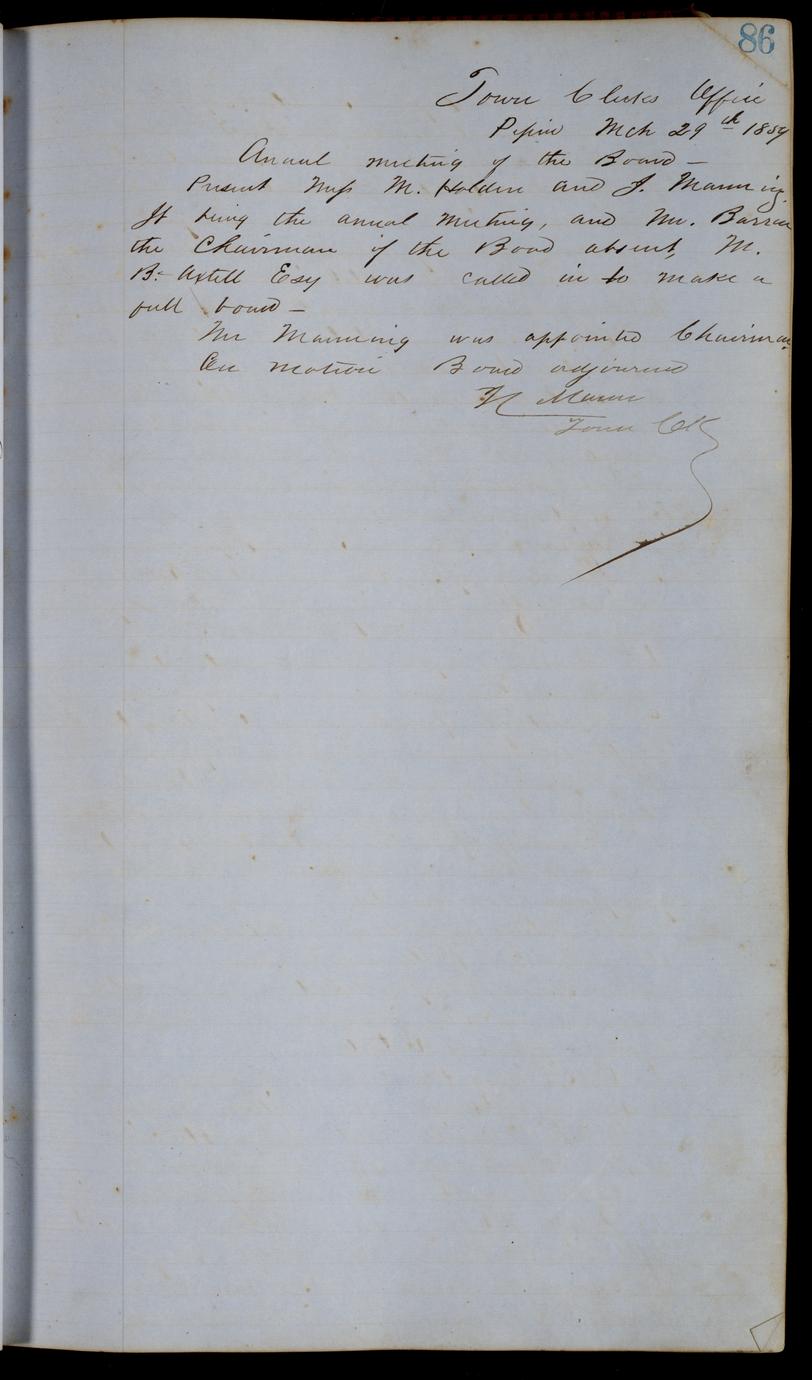 86
Town Clerks Office
Pepin Mch 29th 1859
Annual meeting of the Board —
Present Mess M. Holden and J. Manning.
It being the annual meeting, and Mr. Barron
the Chairman of the Board absent, M.
B. Axtell Esq was called in to make a
full board —
Mr Manning was appointed Chairman.
On motion Board adjourned
Mann
Town Clk